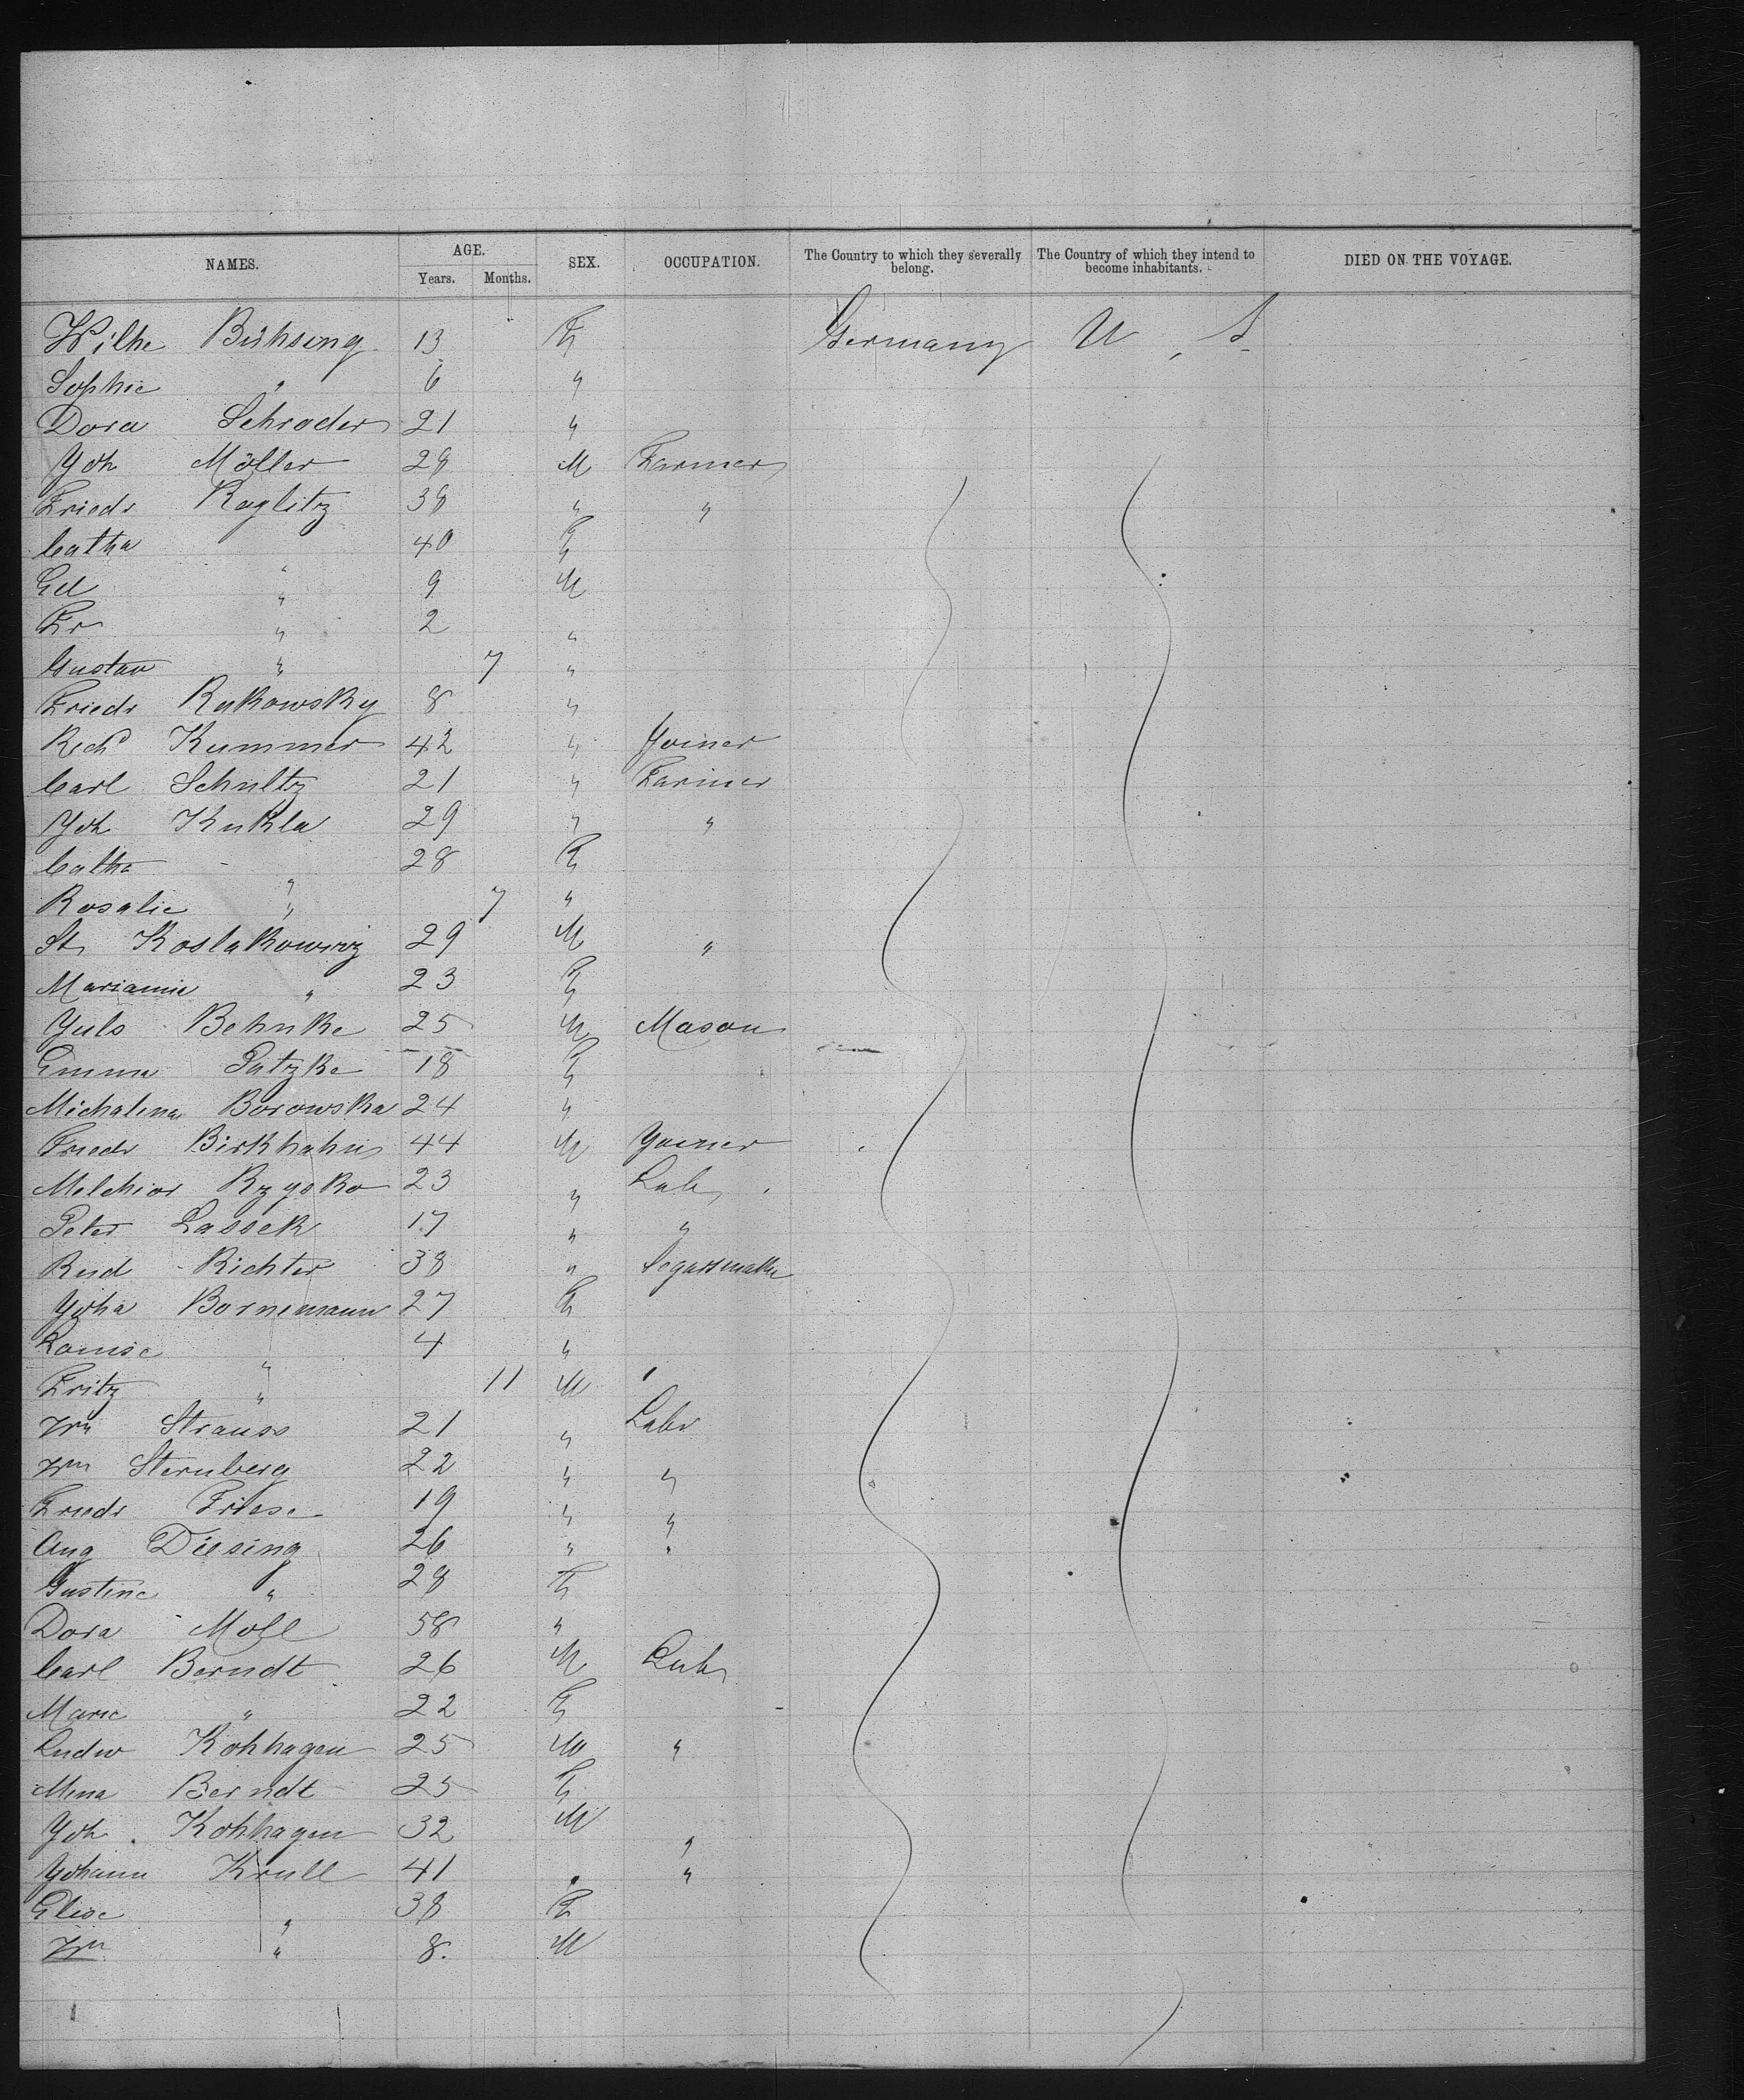 NAMES. AGE. SEX. OCCUPATION. The Country to which they severally belong. The Country of which they intend to become inhabitants. DIED ON THE VOYAGE.
Years. Months.
Wilhe Bühsing 13 F Germany U. S.
Sophie " 6 "
Dora Schroder 21 "
Joh Möller 28 M Farmer
Friedr Raglitz 38 " "
Catha " 40 F
Ed " 9 M
Fr " 2 "
Gustav " 7 "
Friedr Rakowsky 8 "
Rich Kummer 42 " Joiner
Carl Schultz 21 " Farmer
Joh Kukla 29 " "
Catha " 28 F
Rosalie " 7 "
St. 29 M "
Marianne " 23 F
Juls Behnke 25 M Mason
Emma Patzke 18 F
Michalina Borowska 24 "
Friedr Birkhahn 44 M Joiner
Melchior Rzysko 23 " Labr
Peter Lassek 17 " "
Rud Richter 38 " Segarsmaker
Joha Bornemann 27 F
Louise " 4 "
Fritz " 11 M "
Wm Strauss 21 " Labr
Wm Sternberg 22 " "
Friedr Friese 19 " "
Aug Diesing 26 " "
Gustine " 28 F
Dora Moll 58 "
Carl Berndt 26 M Labr
Marie " 22 F
Ludw Kohhagen 25 M "
Mina Berndt 25 F
Joh. Kohhagen 32 M "
Johann Krull 41 " "
Elise " 38 F
Wm " 8. M